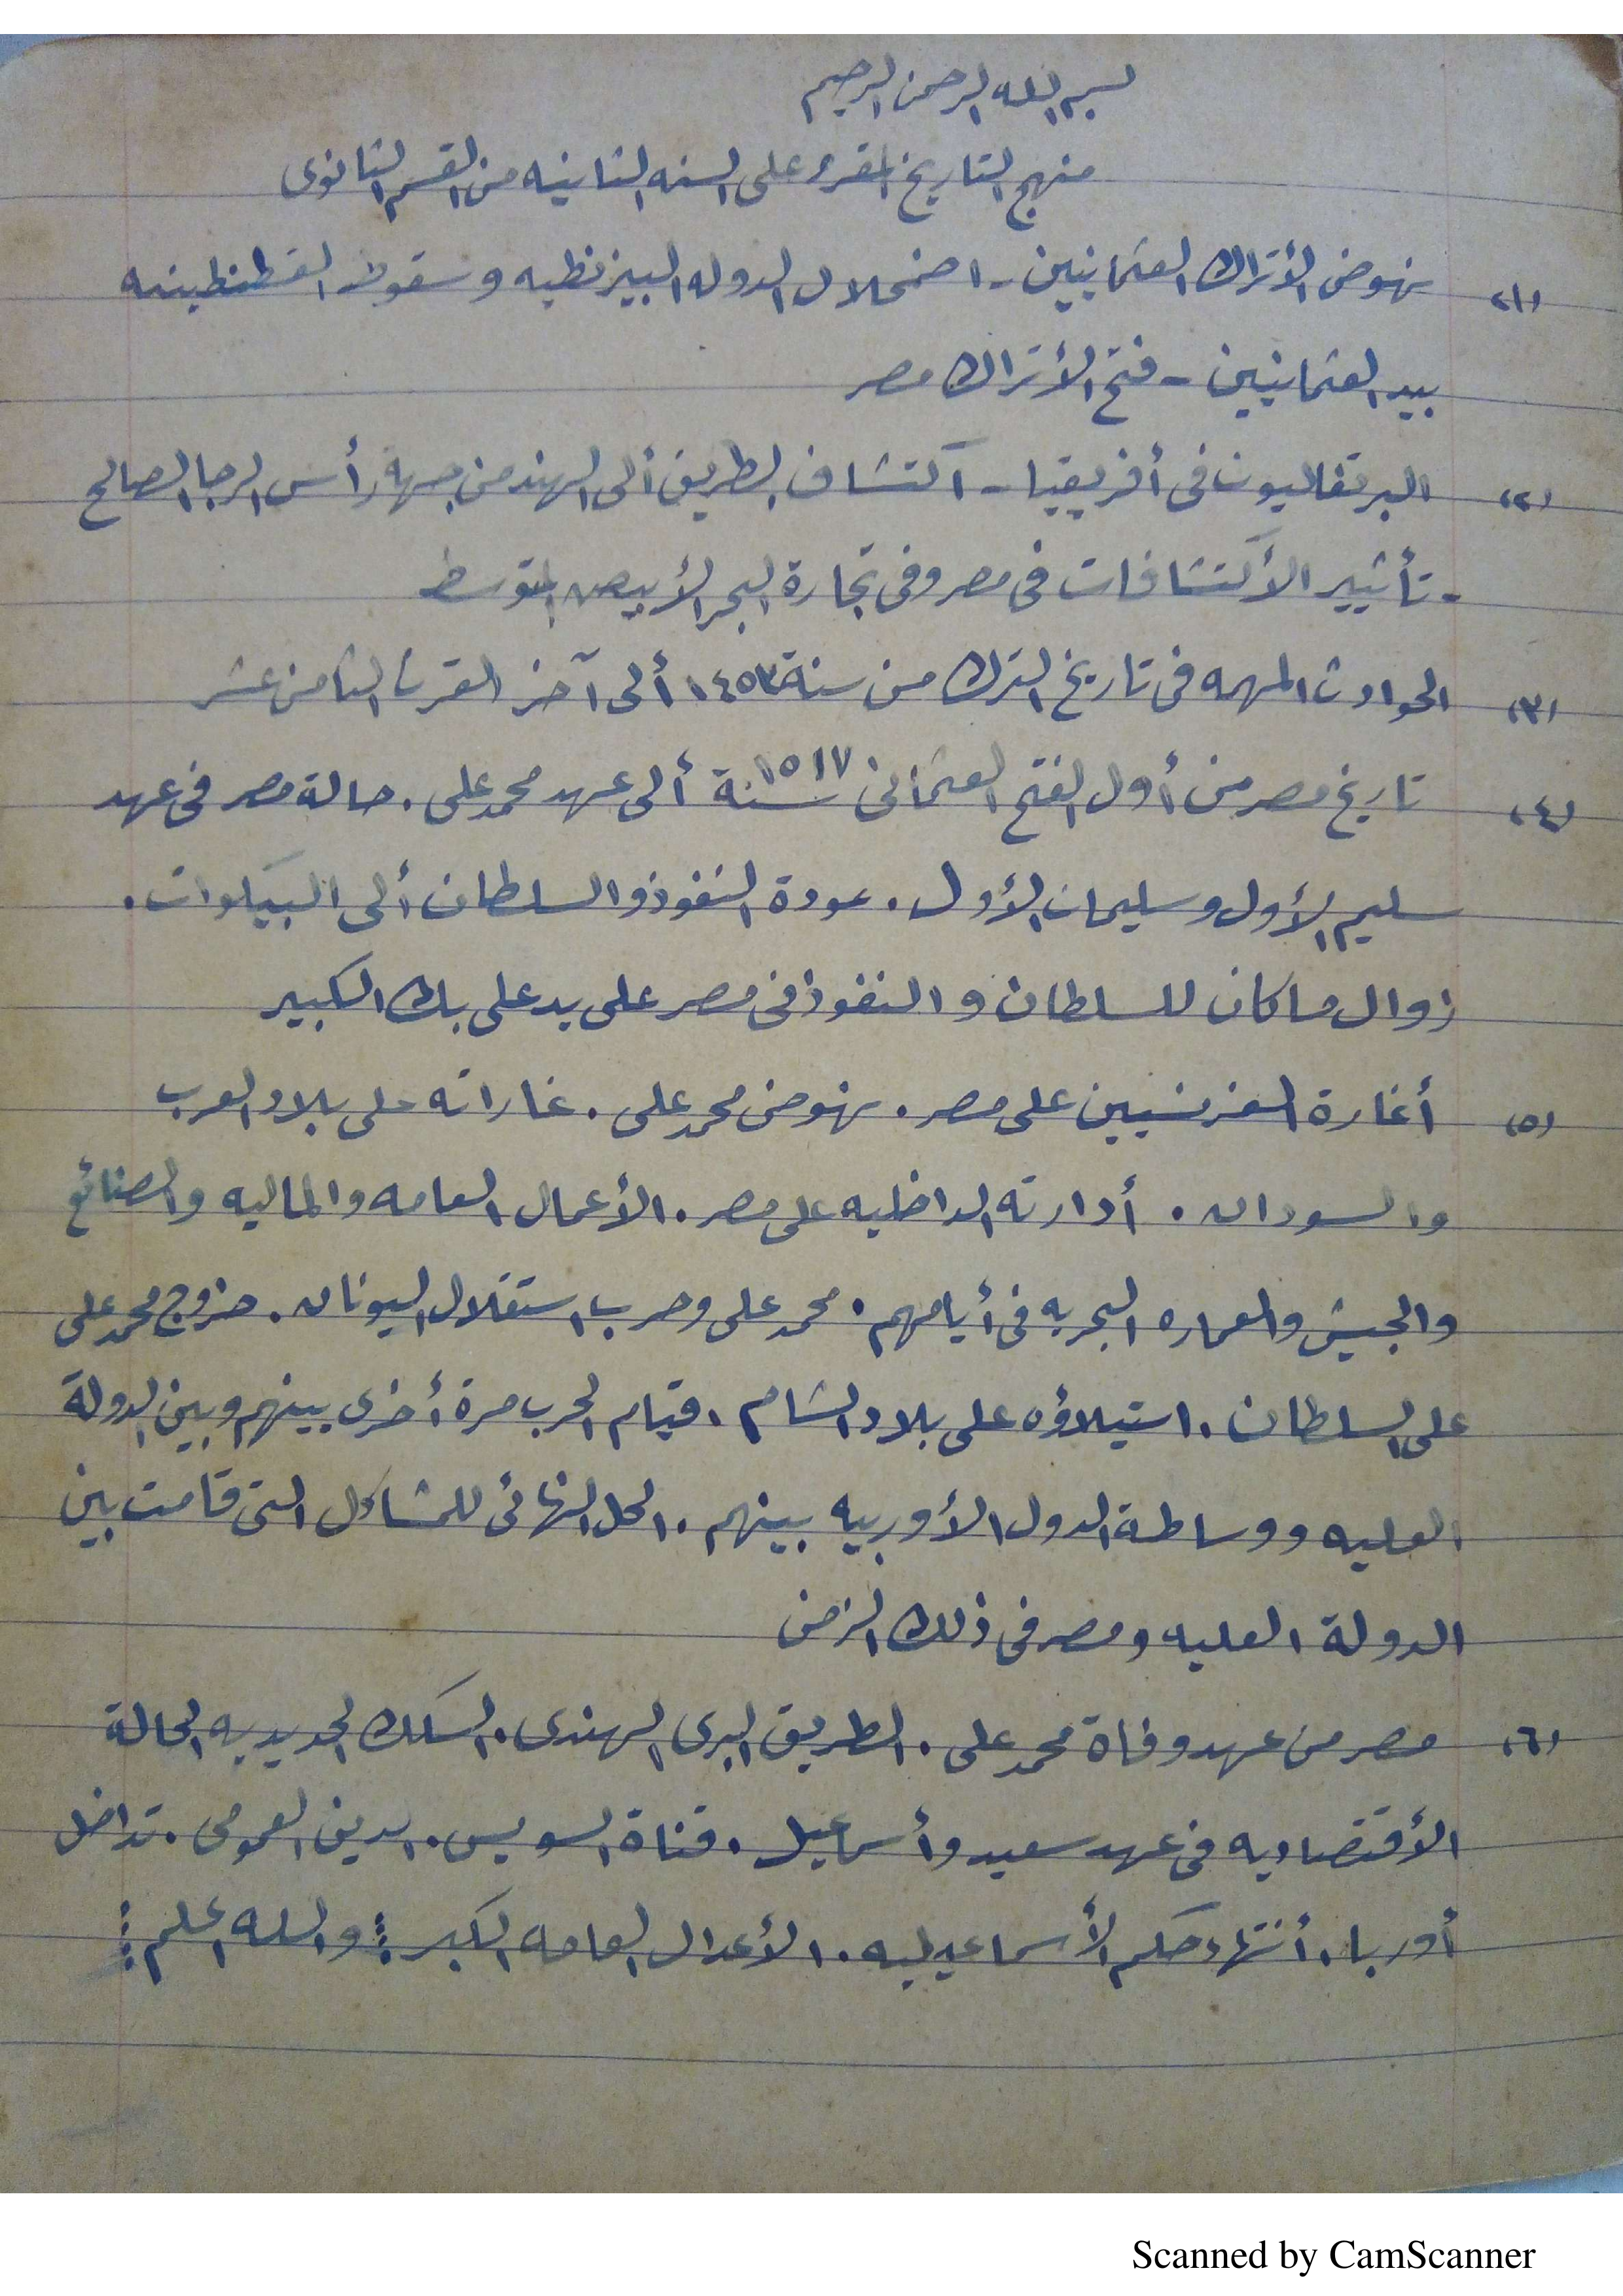 بسم الله الرحمن الرحيم
منهج التاريخ المقرر على السنه الثانيه من القسم الثانوى
(١) نهوض الأتراك العثمانيين - اضمحلال الدوله البيزنطيه وسقوط القسطنطينيه
بيد العثمانيين - فتح الأتراك مصر
(٢) البرتقاليون فى أفريقيا - اكتشاف الطريق ألى الهند من جهة رأس الرجا الصالح
- تأثير الأكتشافات فى مصر وفى تجارة البحر الأبيض المتوسط
(٣) الحوادث المهمه فى تاريخ الترك من سنة ١٤٥٣ ألى آخر القرن الثامن عشر
(٤) تاريخ مصر من أول الفتح العثمانى سنة ١٥١٧ ألى عهد محمد على . حالة مصر فى عهد
سليم الأول وسليمان الأول . عودة النفوذ والسلطان ألى البيكوات .
زوال ما كان للسلطان والنفوذ فى مصر على يد على بك الكبير
(٥) أغارة الفرنسيين على مصر . نهوض محمد على . غاراته على بلاد العرب
والسودان . أدارته الداخليه على مصر . الأعمال العامه والماليه والصنائع
والجيش والعماره البحريه فى أيامهم . محمد على وحرب استقلال اليونان . خروج محمد على
على السلطان . استيلاؤه على بلاد الشام . قيام الحرب مرة أخرى بينهم وبين الدولة
العليه ووساطة الدول الأوربيه بينهم . الحل النهائى للمشاكل التى قامت بين
الدولة العليه ومصر فى ذلك الزمن
(٦) مصر من عهد وفاة محمد على . الطريق البرى الهندى . السكك الحديديه الحالة
الأقتصاديه فى عهد سعيد وأسماعيل . قناة السويس . الدين العمومى . تداخل
أوربا . أنتهاء حكم الأسماعيليه . الأعمال العامه الكبر : والله اعلم :
Scanned by CamScanner